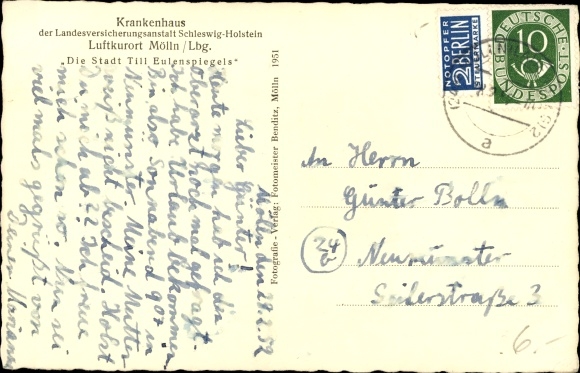 Krankenhaus
der Landesversicherungsanstalt Schleswig-Holstein
Luftkurort Mölln/Lbg.
„Die Stadt Till Eulenspiegels“
Fotografie - Verlag: Fotomeister Benditz, Mölln 1951
NOTOPFER
2 BERLIN
STEUERMARKE
DEUTSCHE
10
BUNDESPOST
a
Mölln den 27.2.52
Lieber Günter!
Heute morgen hab ich den
Oberarzt noch mal gefragt.
Ich habe Urlaub bekommen
Bin also Sonnabend 9 07 in
Neumünster. Meine Mutter
weiß nicht bescheid. Holst
Du mich ab? Ich freue
mich schon so. Nun sei
vielmals gegrüßt von
An Herrn
Günter Bolln
24b
Neumünster
Seilerstraße 3
6.-